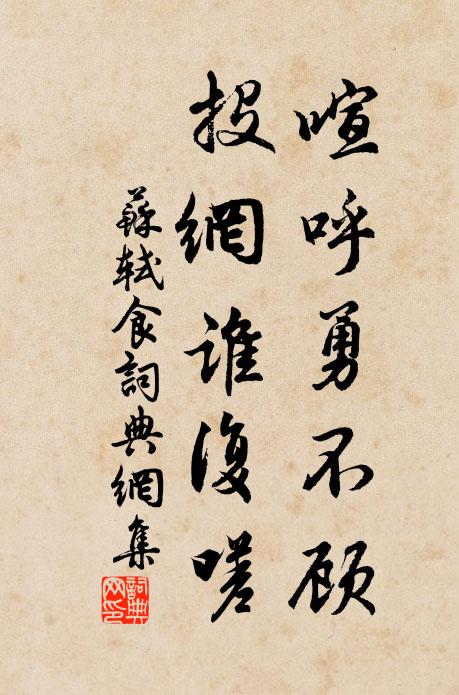 喧呼勇不顾
投網谁復嗟
蘇軾食詞典網集
詞典網印